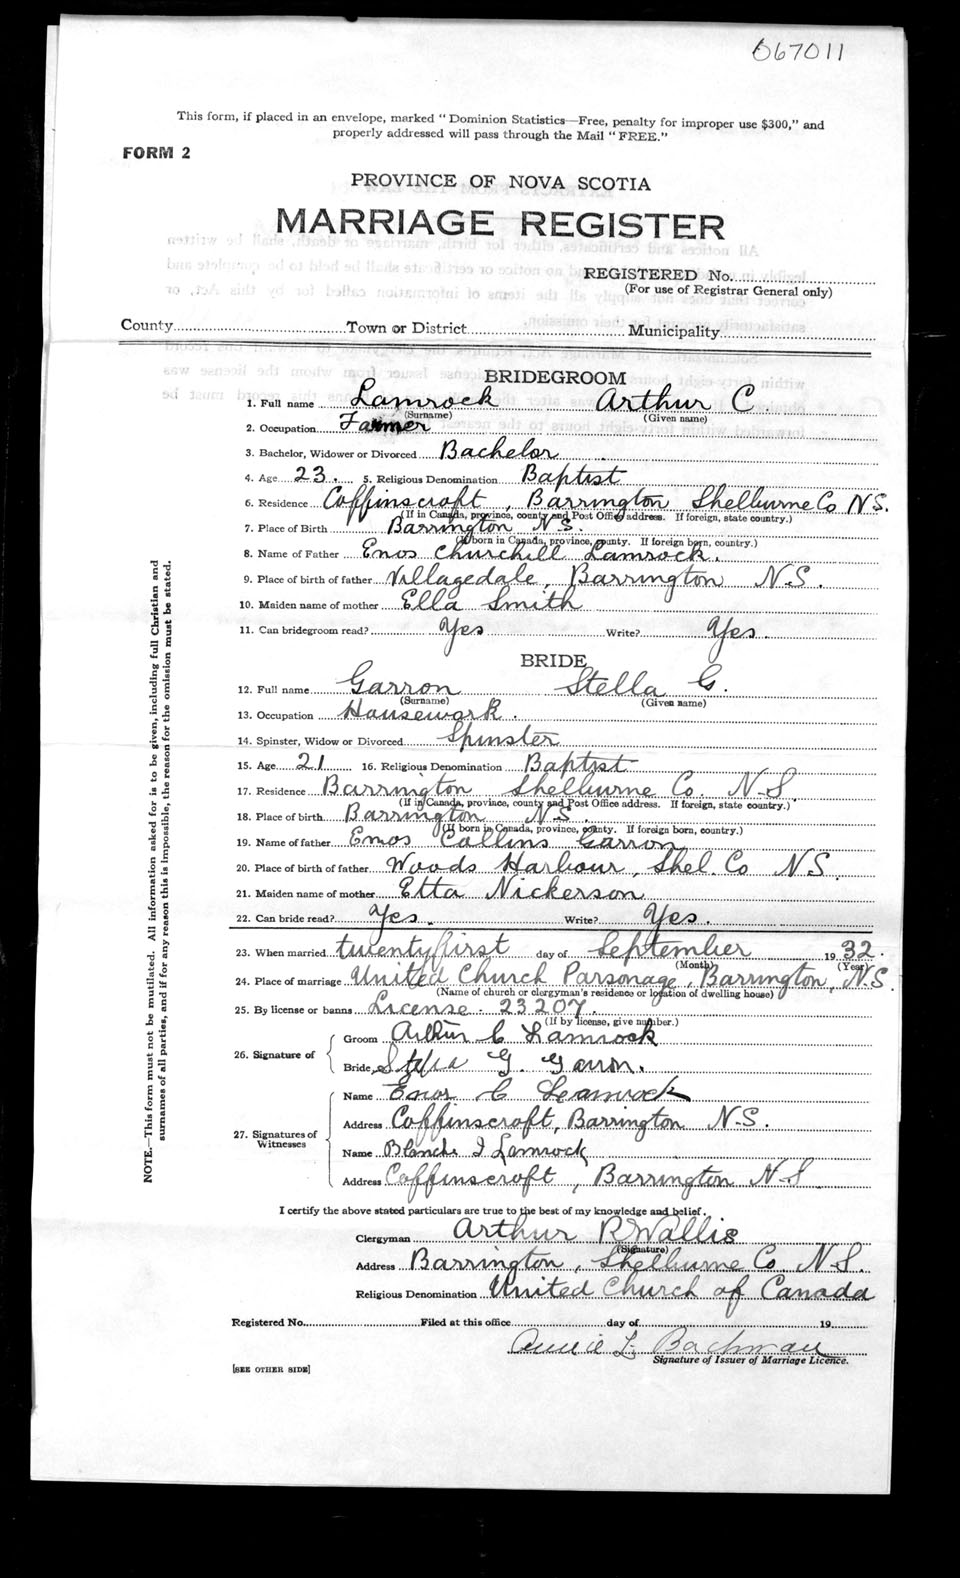 067011
This form, if placed in an envelope, marked "Dominion Statistics—Free, penalty for improper use $300," and
properly addressed will pass through the Mail "FREE."
FORM 2
PROVINCE OF NOVA SCOTIA
MARRIAGE REGISTER
REGISTERED No.
(For use of Registrar General only)
County Town or District Municipality
BRIDEGROOM
1. Full name Lamrock Arthur C.
(Surname) (Given name)
2. Occupation Farmer
3. Bachelor, Widower or Divorced Bachelor
4. Age 23. 5. Religious Denomination Baptist
6. Residence Coffinscroft, Barrington Shelburne Co N.S.
(If in Canada, province, county and Post Office address. If foreign, state country.)
7. Place of Birth Barrington N.S.
(If born in Canada, province, county. If foreign born, country.)
8. Name of Father Enos Churchill Lamrock.
9. Place of birth of father Villagedale, Barrington N.S.
10. Maiden name of mother Ella Smith
11. Can bridegroom read? Yes Write? Yes.
BRIDE
12. Full name Garron Stella G.
(Surname) (Given name)
13. Occupation Housework.
14. Spinster, Widow or Divorced Spinster
15. Age 21 16. Religious Denomination Baptist
17. Residence Barrington Shelburne Co. N.S.
(If in Canada, province, county and Post Office address. If foreign, state country.)
18. Place of birth Barrington N.S.
(If born in Canada, province, county. If foreign born, country.)
19. Name of father Enos Collins Garron
20. Place of birth of father Woods Harbour, Shel. Co N.S.
21. Maiden name of mother Etta Nickerson
22. Can bride read? Yes. Write? Yes.
23. When married twenty first day of September 19 32.
(Month) (Year)
24. Place of marriage United Church Parsonage, Barrington, N.S.
(Name of church or clergyman's residence or location of dwelling house)
25. By license or banns License. 23207.
(If by license, give number.)
26. Signature of
Groom Arthur C Lamrock
Bride Stella G. Garron.
27. Signatures of Witnesses
Name Enos C Lamrock
Address Coffinscroft, Barrington N.S.
Name Blanche I Lamrock
Address Coffinscroft, Barrington N.S.
I certify the above stated particulars are true to the best of my knowledge and belief.
Clergyman Arthur R Wallis
(Signature)
Address Barrington, Shelburne Co. N.S.
Religious Denomination United Church of Canada
Registered No. Filed at this office day of 19
Annie L. Bachman
Signature of Issuer of Marriage Licence.
[SEE OTHER SIDE]
NOTE.—This form must not be mutilated. All information asked for is to be given, including full Christian and
surnames of all parties, and if for any reason this is impossible, the reason for the omission must be stated.